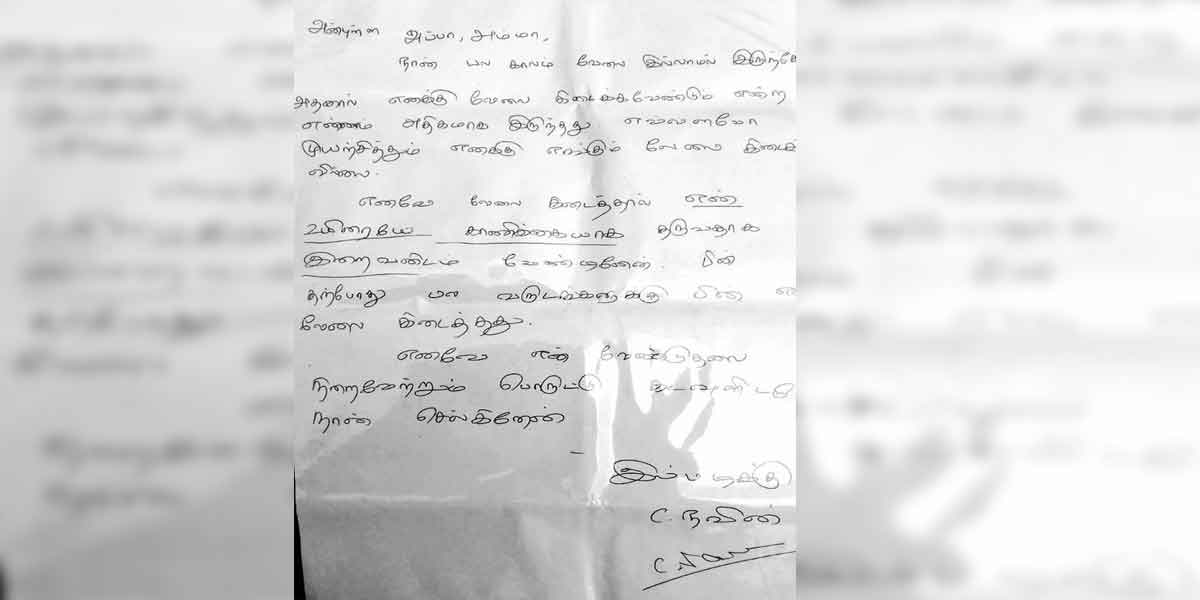 அன்புள்ள அப்பா, அம்மா,
நான் பல காலம் வேலை இல்லாமல்
அதனால் எனக்கு வேலை கிடைக்கவேண்டும் என்ற
எண்ணம் அதிகமாக இருந்தது. எவ்வளவோ
முயற்சித்தும் எனக்கு எங்கும் வேலை
வில்லை.
எனவே வேலை கிடைத்தால் என்
உயிரையே காணிக்கையாக தருவதாக
இறைவனிடம் வேண்டினேன். பின்
தற்போது பல வருடங்களுக்கு பின்
வேலை கிடைத்தது.
எனவே என் வேண்டுதலை
நிறைவேற்றும் பொருட்டு
நான் செல்கிறேன்
இப்படிக்கு
C. நவின்